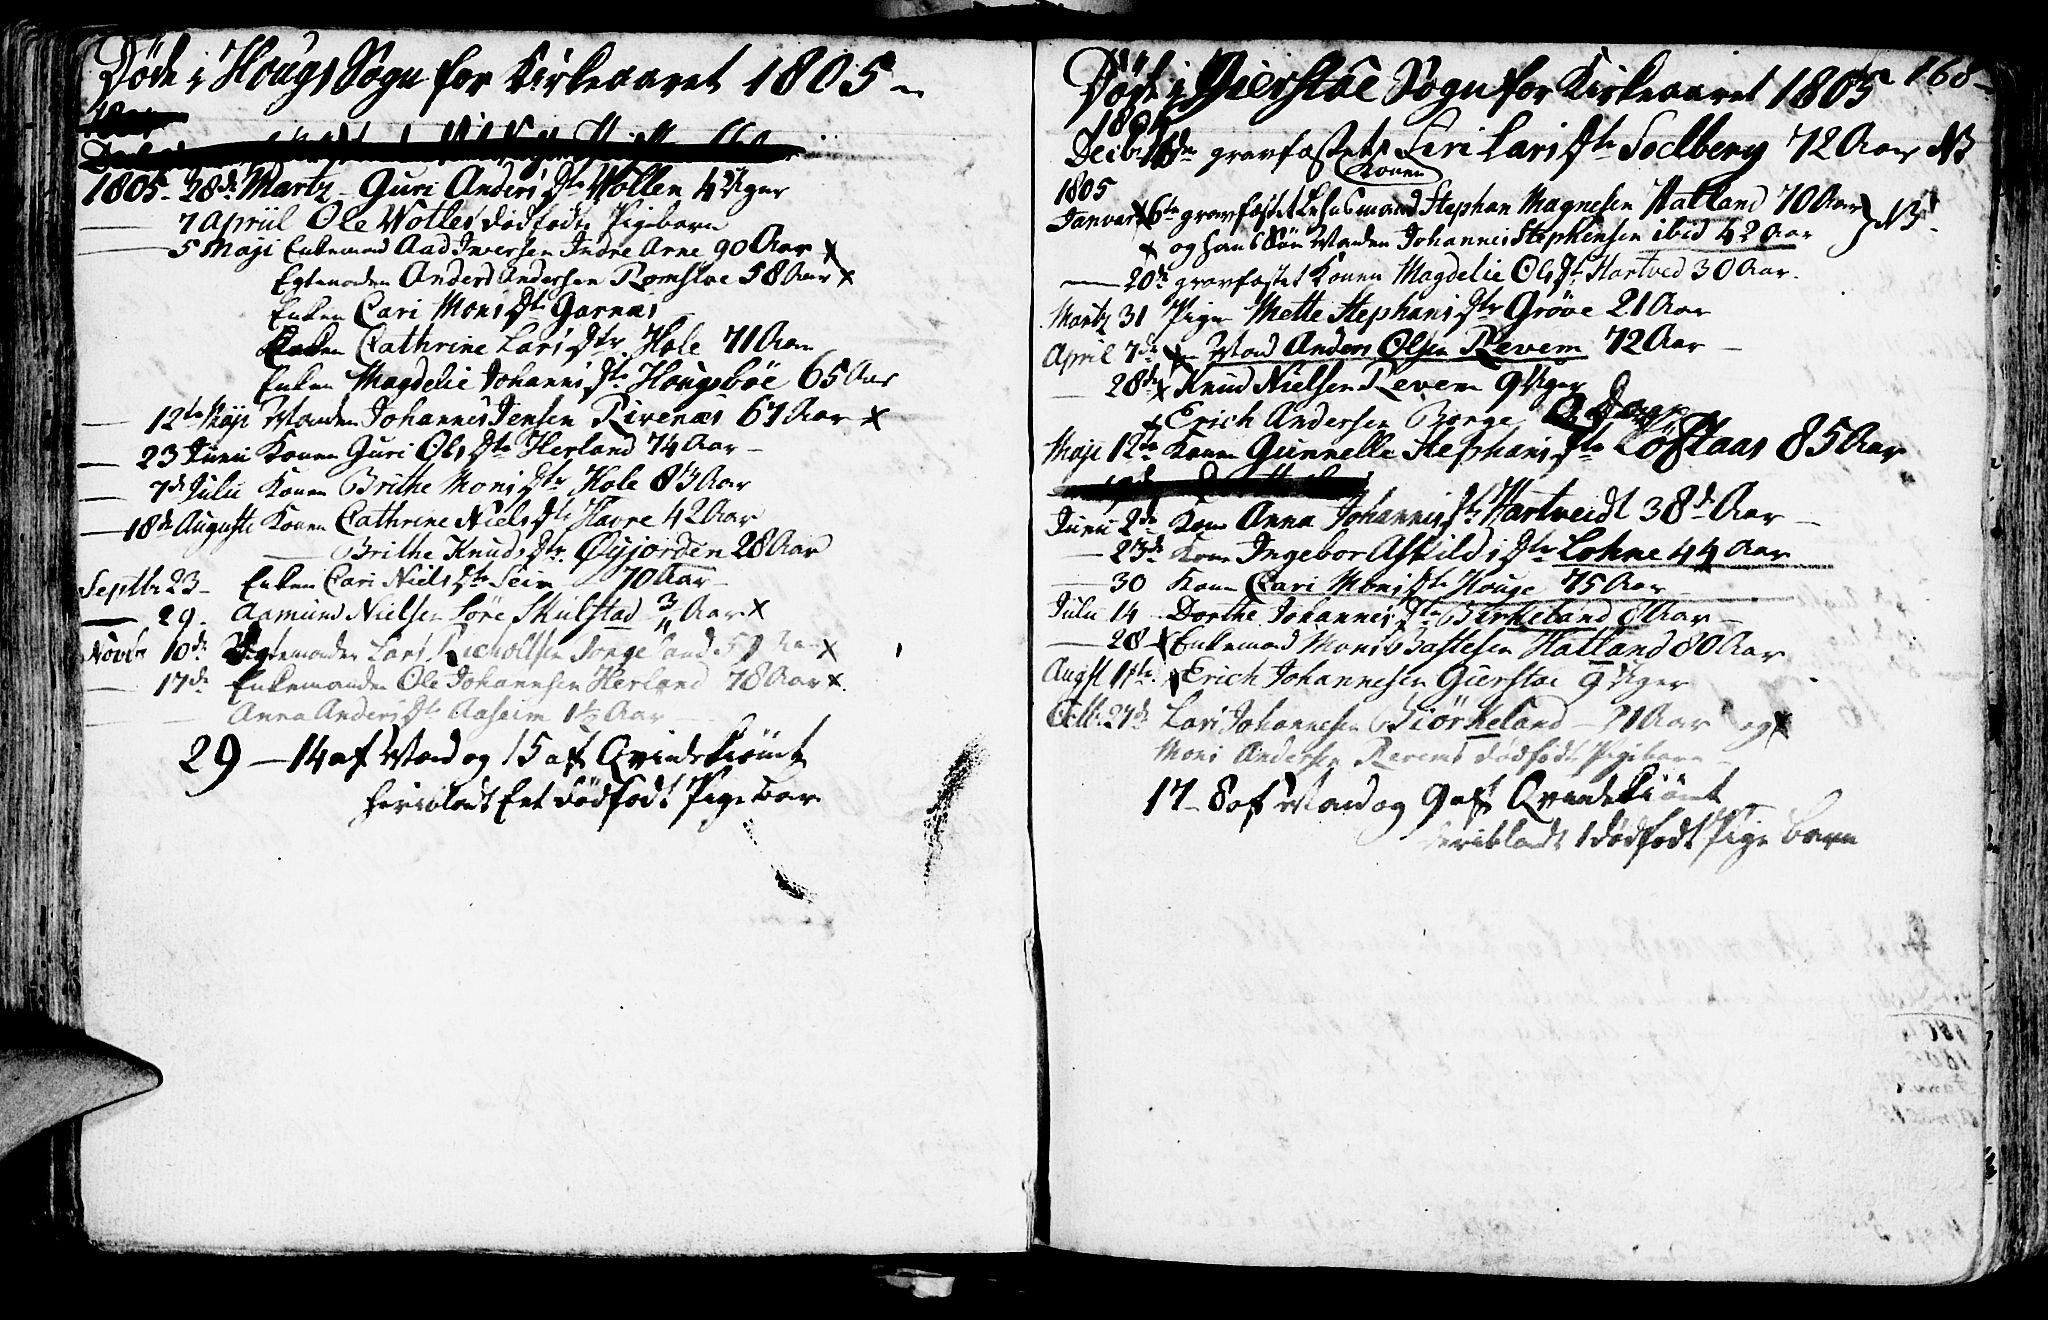 Døde i Hougs Sogn for Kirkeaaret 1805
1805 28de Martz Guri Anders dtr Vollen 4 Uger
7 Apriil Ole Votles dødfødte Pigebarn
5 Maji Enkemand Aad Iversen Indre Arne 90 Aar x
Egtemanden Anders Andersen Romsloe 58 Aar x
Enken Cari Mons dtr Garnæs
Enken Cathrine Lars dtr Hole 71 Aar
Enken Magdelie Johannis dtr Hougsbøe 65 Aar
12te Maji Manden Johannes Jensen Rivenæs 67 Aar x
23 Junii Konen Guri Ols dtr Herland 74 Aar
7de Julii Konen Brithe Mons dtr Hole 83 Aar
18de Auguste Konen Cathrine Niels dtr Havre 42 Aar
Brithe Knuds dtr Øyjorden 28 Aar
Septbr 23 Enken Cari Niels dtr Seim 70 Aar
29. Aamund Nielsen Søre Mulstad 3/4 Aar x
Novbr 10de Egtemanden Lars x
17de Enkemanden Ole Johannesen Herland 78 Aar x
Anna Anders dtr Aaseim 1½ Aar
29 — 14 af Mand og 15 af Qvindekiönt
heriblandt Eet dödfødt Pige Barn
Døde i Gierstoe Sogn for Kirkeaaret 1805 168
1804
Decbr gravfæstet Konen Siri Lars dtr Soelberg 72 Aar NB
1805
Januar 6te gravfæstet Lehnsmand Stephan Magnesen Hatland 70 Aar
x og hans Sön Manden Johannes Stephensen ibid 42 Aar } NB
20de gravfæstet Konen Magdelie Ols dtr Hartved 30 Aar.
Martz 31 Pige Mette Stephans dtr Gröve 21 Aar
April 7de x Mand Anders Olsen Revem 72 Aar
28de x Knud Nielsen Revem 9 Uger
x Erich Andersen Borge
Maji 12te Konen Gunnelle Stephans dtr Löftaas 85 Aar
Junii 2de Kone Anna Johannis dtr Hartveidt 38de Aar
23de Kone Ingebor Askilds dtr Lohne 44 Aar
30 Kone Cari Mons dtr Houge 75 Aar
Julii 14 Dorthe Johannes dtr Birkeland 8 Aar
28 x Enkemand Mons Bastesen Hatland 80 Aar
Augst 11te x Erich Johannesen Gierstoe 9 Uger
Octbr 27de Lars Johannesen Biörkeland 21 Aar og x
Mons Andersen Revems dödfødt Pigebarn
17 — 8 af Mand og 9 af Qvindekiönt
heriblandt 1 dödfødt Pige Barn